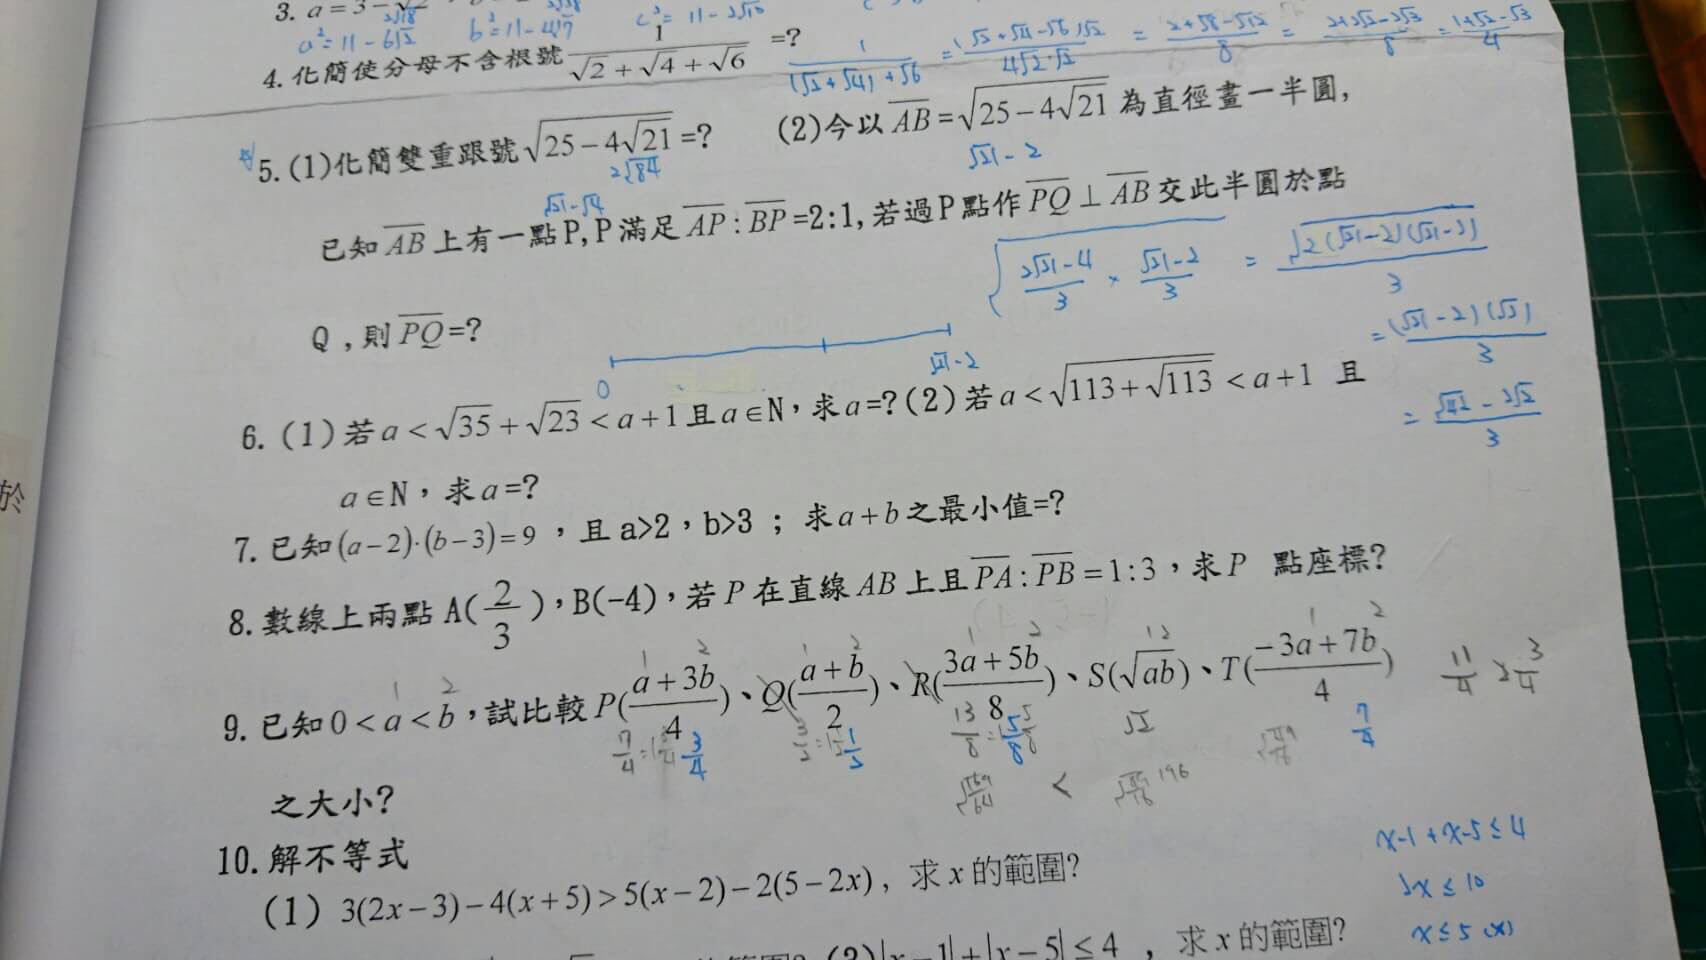 3. a = 3 - √2
2√18
a² = 11 - 6√2 b² = 11 - 4√7 c² = 11 - 2√10
4. 化簡使分母不含根號 1/(√2 + √4 + √6) =? 1/((√2 + √4) + √6) = (√2 + √4 - √6)√2/(4√2·√2) = (2 + √8 - √12)/8 = (2 + 2√2 - 2√3)/8 = (1 + √2 - √3)/4
5. (1)化簡雙重跟號 √(25 - 4√21) =? (2)今以 AB = √(25 - 4√21) 為直徑畫一半圓,
2√84 √21 - 2
√21 - √4
已知 AB 上有一點P, P 滿足 AP : BP =2:1, 若過P點作 PQ ⊥ AB 交此半圓於點
√((2√21 - 4)/3 × (√21 - 2)/3) = √(2(√21 - 2)(√21 - 2))/3
Q , 則 PQ =?
= (√21 - 2)(√2)/3
0 √21 - 2
= (√42 - 2√2)/3
6. (1) 若 a < √35 + √23 < a + 1 且 a ∈ N, 求 a =? (2) 若 a < √(113 + √113) < a + 1 且
a ∈ N, 求 a =?
7. 已知 (a - 2)·(b - 3) = 9 , 且 a>2, b>3 ; 求 a + b 之最小值=?
8. 數線上兩點 A( 2/3 ), B(-4), 若 P 在直線 AB 上且 PA : PB = 1 : 3, 求 P 點座標?
1 2 1 2 1 2 1 2 1 2
9. 已知 0 < a < b, 試比較 P( (a + 3b)/4 )、Q( (a + b)/2 )、R( (3a + 5b)/8 )、S(√ab)、T( (-3a + 7b)/4 ) 11/4 2 3/4
7/4 = 1 3/4 3/2 = 1 1/2 13/8 = 1 5/8 √2 7/4
√(169/64) <
196
之大小?
10. 解不等式
x-1 + x-5 ≤ 4
(1) 3(2x - 3) - 4(x + 5) > 5(x - 2) - 2(5 - 2x), 求 x 的範圍?
2x ≤ 10
|x - 1| + |x - 5| ≤ 4 , 求 x 的範圍?
x ≤ 5 (x)
於